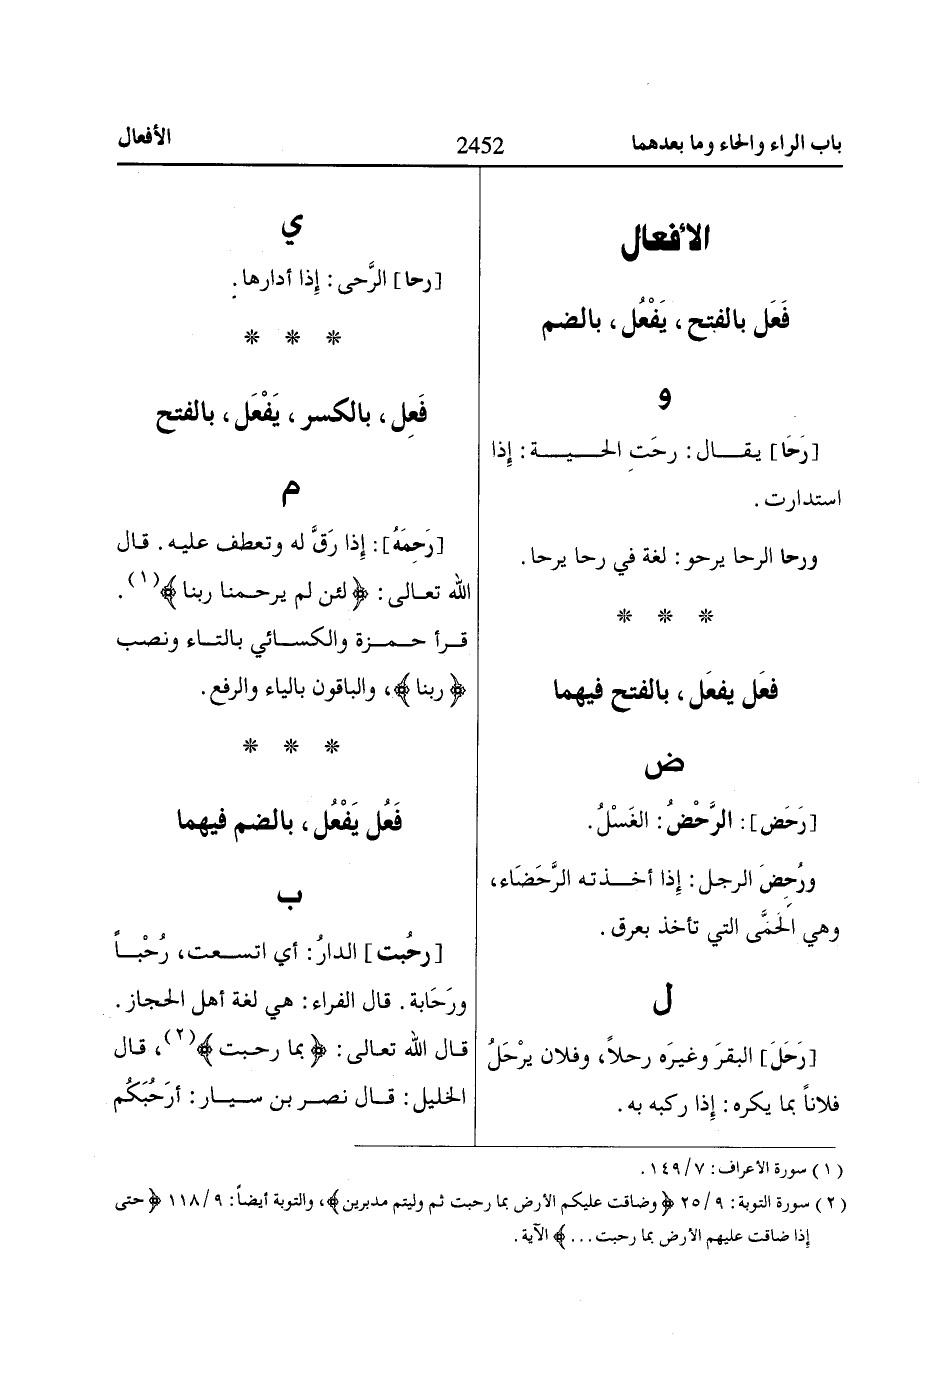 باب الراء والحاء وما بعدهما 2452 الأفعال
الأفعال
فَعَل بالفتح، يَفْعُل، بالضم
و
[رَحَا] يقال: رحَتِ الحية: إِذا
استدارت.
ورحا الرحا يرحو: لغة في رحا يرحا.
* * *
فعَل يفعَل، بالفتح فيهما
ض
[رَحَض]: الرَّحْضُ: الغَسْلُ.
ورُحِضَ الرجل: إِذا أخذته الرَّحَضَاء،
وهي الحُمَّى التي تأخذ بعرق.
ل
[رَحَلَ] البقرَ وغيرَه رحلاً، وفلان يرْحَلُ
فلاناً بما يكره: إِذا ركبه به.
ي
[رحا] الرَّحى: إِذا أدارها.
* * *
فَعِل، بالكسر، يَفْعَل، بالفتح
م
[رَحِمَهُ]: إِذا رَقَّ له وتعطف عليه. قال
الله تعالى: ﴿لئن لم يرحمنا ربنا﴾(١).
قرأ حمزة والكسائي بالتاء ونصب
﴿ربنا﴾، والباقون بالياء والرفع.
* * *
فَعُل يَفْعُل، بالضم فيهما
ب
[رحُبت] الدارُ: أي اتسعت، رُحْباً
ورَحَابة. قال الفراء: هي لغة أهل الحجاز.
قال الله تعالى: ﴿بما رحبت﴾(٢)، قال
الخليل: قال نصر بن سيار: أرَحُبَكُم
(١) سورة الأعراف: ١٤٩/٧.
(٢) سورة التوبة: ٢٥/٩ ﴿وضاقت عليكم الأرض بما رحبت ثم وليتم مدبرين﴾، والتوبة أيضاً: ١١٨/٩ ﴿حتى
إذا ضاقت عليهم الأرض بما رحبت...﴾ الآية.